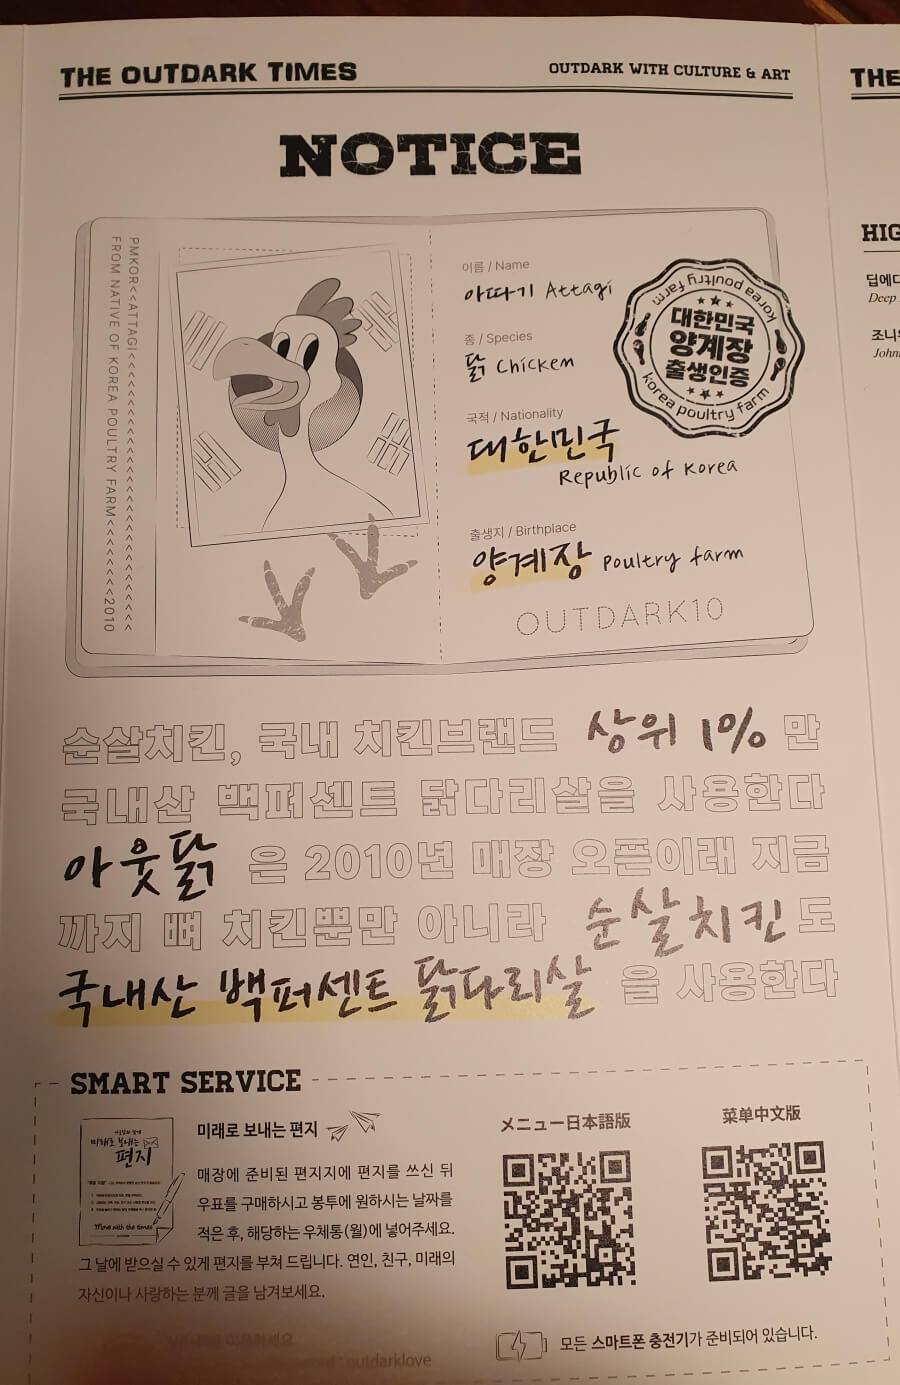 THE OUTDARK TIMES
OUTDARK WITH CULTURE & ART
NOTICE
PMKOR<<ATTAGI<<<<<<<<<<<<<<<<<<<<<<<<<<<
FROM NATIVE OF KOREA POULTRY FARM<<<<<<<<<2010
이름 / Name
아따기 Attagi
종 / Species
닭 Chicken
국적 / Nationality
대한민국
Republic of Korea
출생지 / Birthplace
양계장 Poultry farm
OUTDARK10
korea poultry farm
대한민국
양계장
출생인증
korea poultry farm
순살치킨, 국내 치킨브랜드 상위 1% 만
국내산 백퍼센트 닭다리살을 사용한다
아웃닭 은 2010년 매장 오픈이래 지금
까지 뼈 치킨뿐만 아니라 순살치킨도
국내산 백퍼센트 닭다리살 을 사용한다
SMART SERVICE
미래로 보내는
편지
미래로 보내는 편지
매장에 준비된 편지지에 편지를 쓰신 뒤
우표를 구매하시고 봉투에 원하시는 날짜를
적은 후, 해당하는 우체통(월)에 넣어주세요.
그 날에 받으실 수 있게 편지를 부쳐 드립니다. 연인, 친구, 미래의
자신이나 사랑하는 분께 글을 남겨보세요.
メニュー日本語版
菜单中文版
모든 스마트폰 충전기가 준비되어 있습니다.
이용하세요
outdarklove
THE
HIG
딥에디
Deep
조니워
John